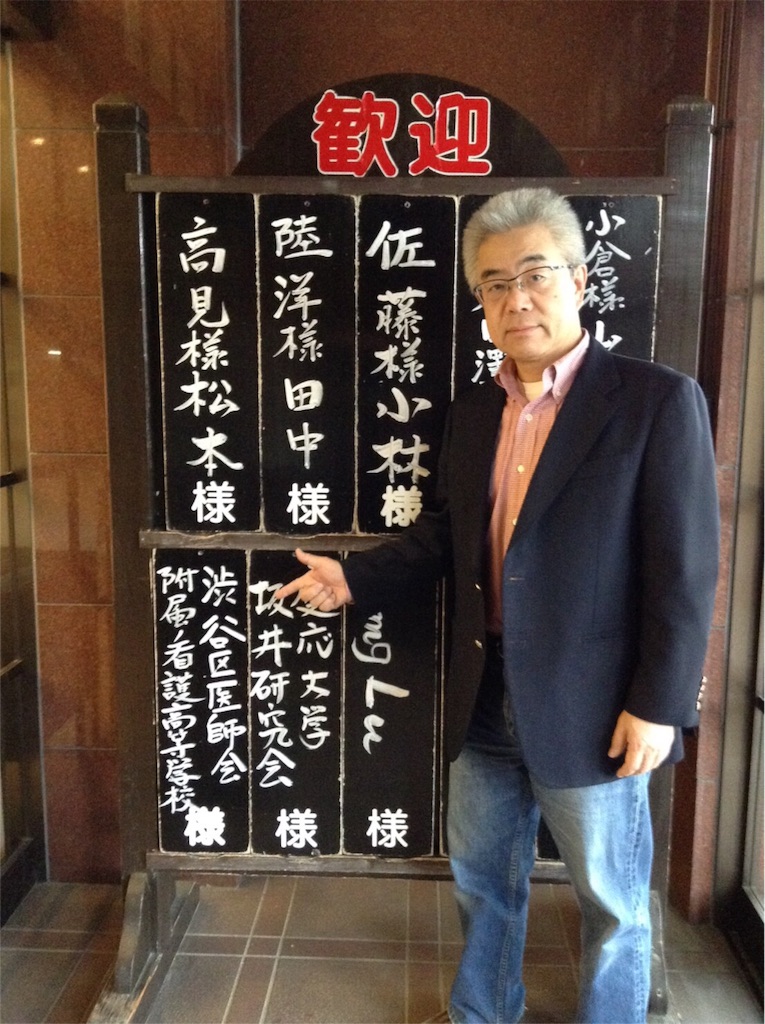 歓迎
小倉様
佐藤様小林様
陸洋様田中様
高見様松本様
様
応大学
坂井研究会様
渋谷区医師会
附属看護高等学校様